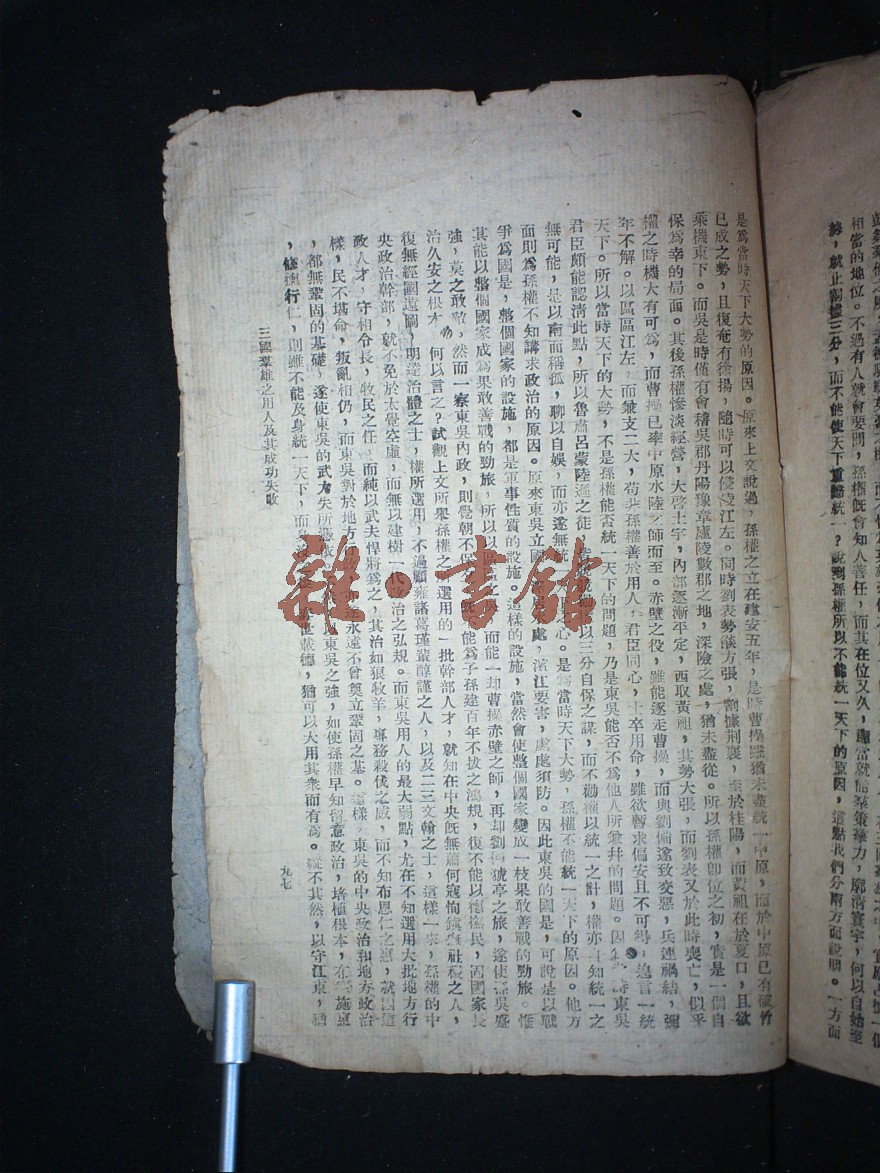 相當的地位。不過有人就會要問,孫權既會知人善任,而其在位又久,應當就能羣策羣力,廓清寰宇,何以自始至
終,就止割據三分,而不能使天下重歸統一?說到孫權所以不能統一天下的原因,這點我們分兩方面說明。一方面
是爲當時天下大勢的原因。原來上文說過,孫權之立在建安五年,是時曹操雖猶未盡統一中原,而於中原已有破竹
已成之勢,且復奄有徐揚,隨時可以侵凌江左。同時劉表勢燄方張,割據荆襄,至於桂陽,而黃祖在於夏口,且欲
乘機東下。而吳是時僅有會稽吳郡丹陽豫章廬陵數郡之地,深險之處,猶未盡從。所以孫權卽位之初,實是一個自
保爲幸的局面。其後孫權慘淡經營,大啓土宇,內部逐漸平定,西取黃祖,其勢大張,而劉表又於此時喪亡,似乎
權之時機大有可爲,而曹操已率中原水陸之師而至。赤壁之役,雖能逐走曹操,而與劉備遂致交惡,兵連禍結,彌
年不解。以區區江左,而兼支二大,苟非孫權善於用人,君臣同心,士卒用命,雖欲暫求偏安且不可得,遑言一統
天下。所以當時天下的大勢,不是孫權能否統一天下的問題,乃是東吳能否不爲他人所兼幷的問題。因 時東吳
君臣頗能認清此點,所以魯肅呂蒙陸遜之徒, 以三分自保之謀,而不勸權以統一之計,權亦自知統一之
無可能,是以南面稱孤,聊以自娛,而亦遂無統 心。是爲當時天下大勢,孫權不能統一天下的原因。他方
面則爲孫權不知講求政治的原因。原來東吳立國 處,濱江要害,處處須防。因此東吳的國是,可說是以戰
爭爲國是,整個國家的設施,都是軍事性質的設施。這樣的設施,當然會使整個國家變成一枝果敢善戰的勁旅。惟
其能以整個國家成爲果敢善戰的勁旅,所以以 之 而能一却曹操赤壁之師,再却劉 猇亭之旅,遂使 吳盛
強,莫之敢敵,然而一察東吳內政,則覺朝不保 能爲子孫建百年不拔之鴻規,復不能以德撫民,爲國家長
治久安之根本。何以言之?試觀上文所舉孫權之 選用的一批幹部人才,就知在中央既無蕭何寇恂鎮撫社稷之人,
復無經國遠圖,明達治體之士,權所選用,不過顧雍諸葛瑾輩醇謹之人,以及二三文翰之士,這樣一來,孫權的中
央政治幹部,就不免於太覺空虛,而無以建樹一代政治之弘規。而東吳用人的最大弱點,尤在不知選用大批地方行
政人才,守相令長,牧民之任,而純以武夫悍將爲之,其治如狼牧羊,專務殺伐之威,而不知布恩仁之惠,就因這
樣,民不堪命,叛亂相仍,而東吳對於地方行 永遠不曾奠立鞏固之基。這樣,東吳的中央政治和地方政治
,都無鞏固的基礎,遂使東吳的武力失所憑依 以東吳之強,如使孫權早知留意政治,培植根本,布 施惠
,修德行仁,則雖不能及身統一天下,而 世載德,猶可以大用其衆而有爲。縱不其然,以守江東,猶
三國羣雄之用人及其成功失敗
九七
雜·書館